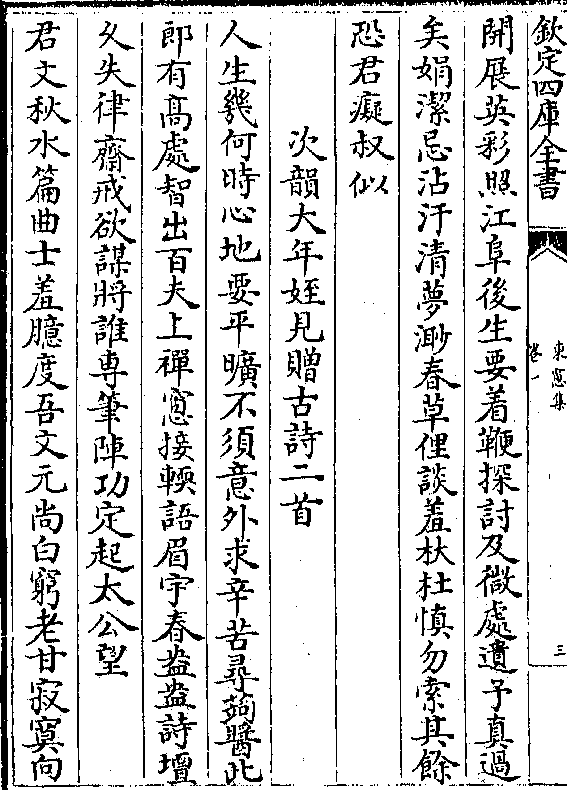 欽定四庫全書
東窻集
卷一
三
開展英彩照江阜後生要着鞭探討及微處遺予真過
矣娟潔忌沾汙清夢渺春草俚談羞杕杜慎勿索其餘
恐君癡叔似
次韻大年姪見贈古詩二首
人生幾何時心地要平曠不須意外求辛苦尋蒟醬此
郎有髙處智出百夫上禪窻接輭語眉宇春盎盎詩壇
乆失律齋戒欲謀將誰専筆陣功定起太公望
君文秋水篇曲士羞臆度吾文元尚白窮老甘寂寞向